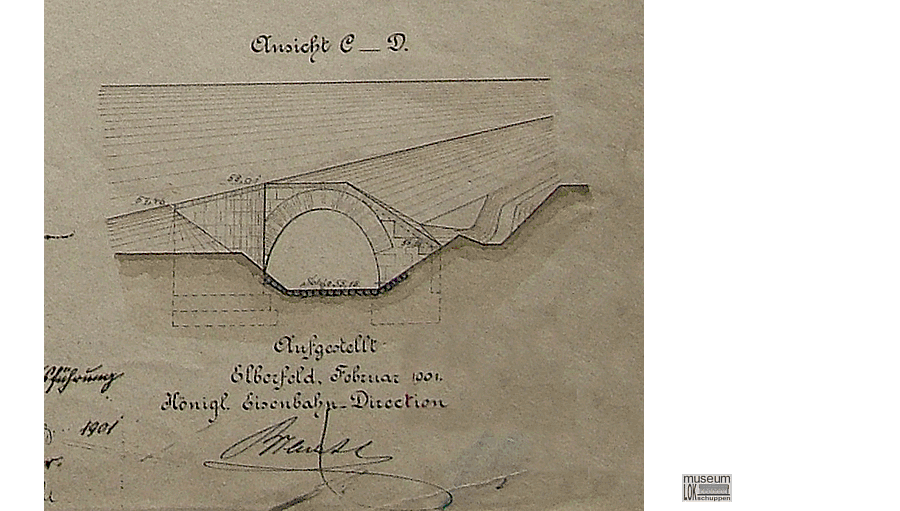 Ansicht C — D.
58,01
Aufgestellt
Elberfeld, Februar 1901.
Königl. Eisenbahn-Direction
sführung
1901
museum
LOK schuppen